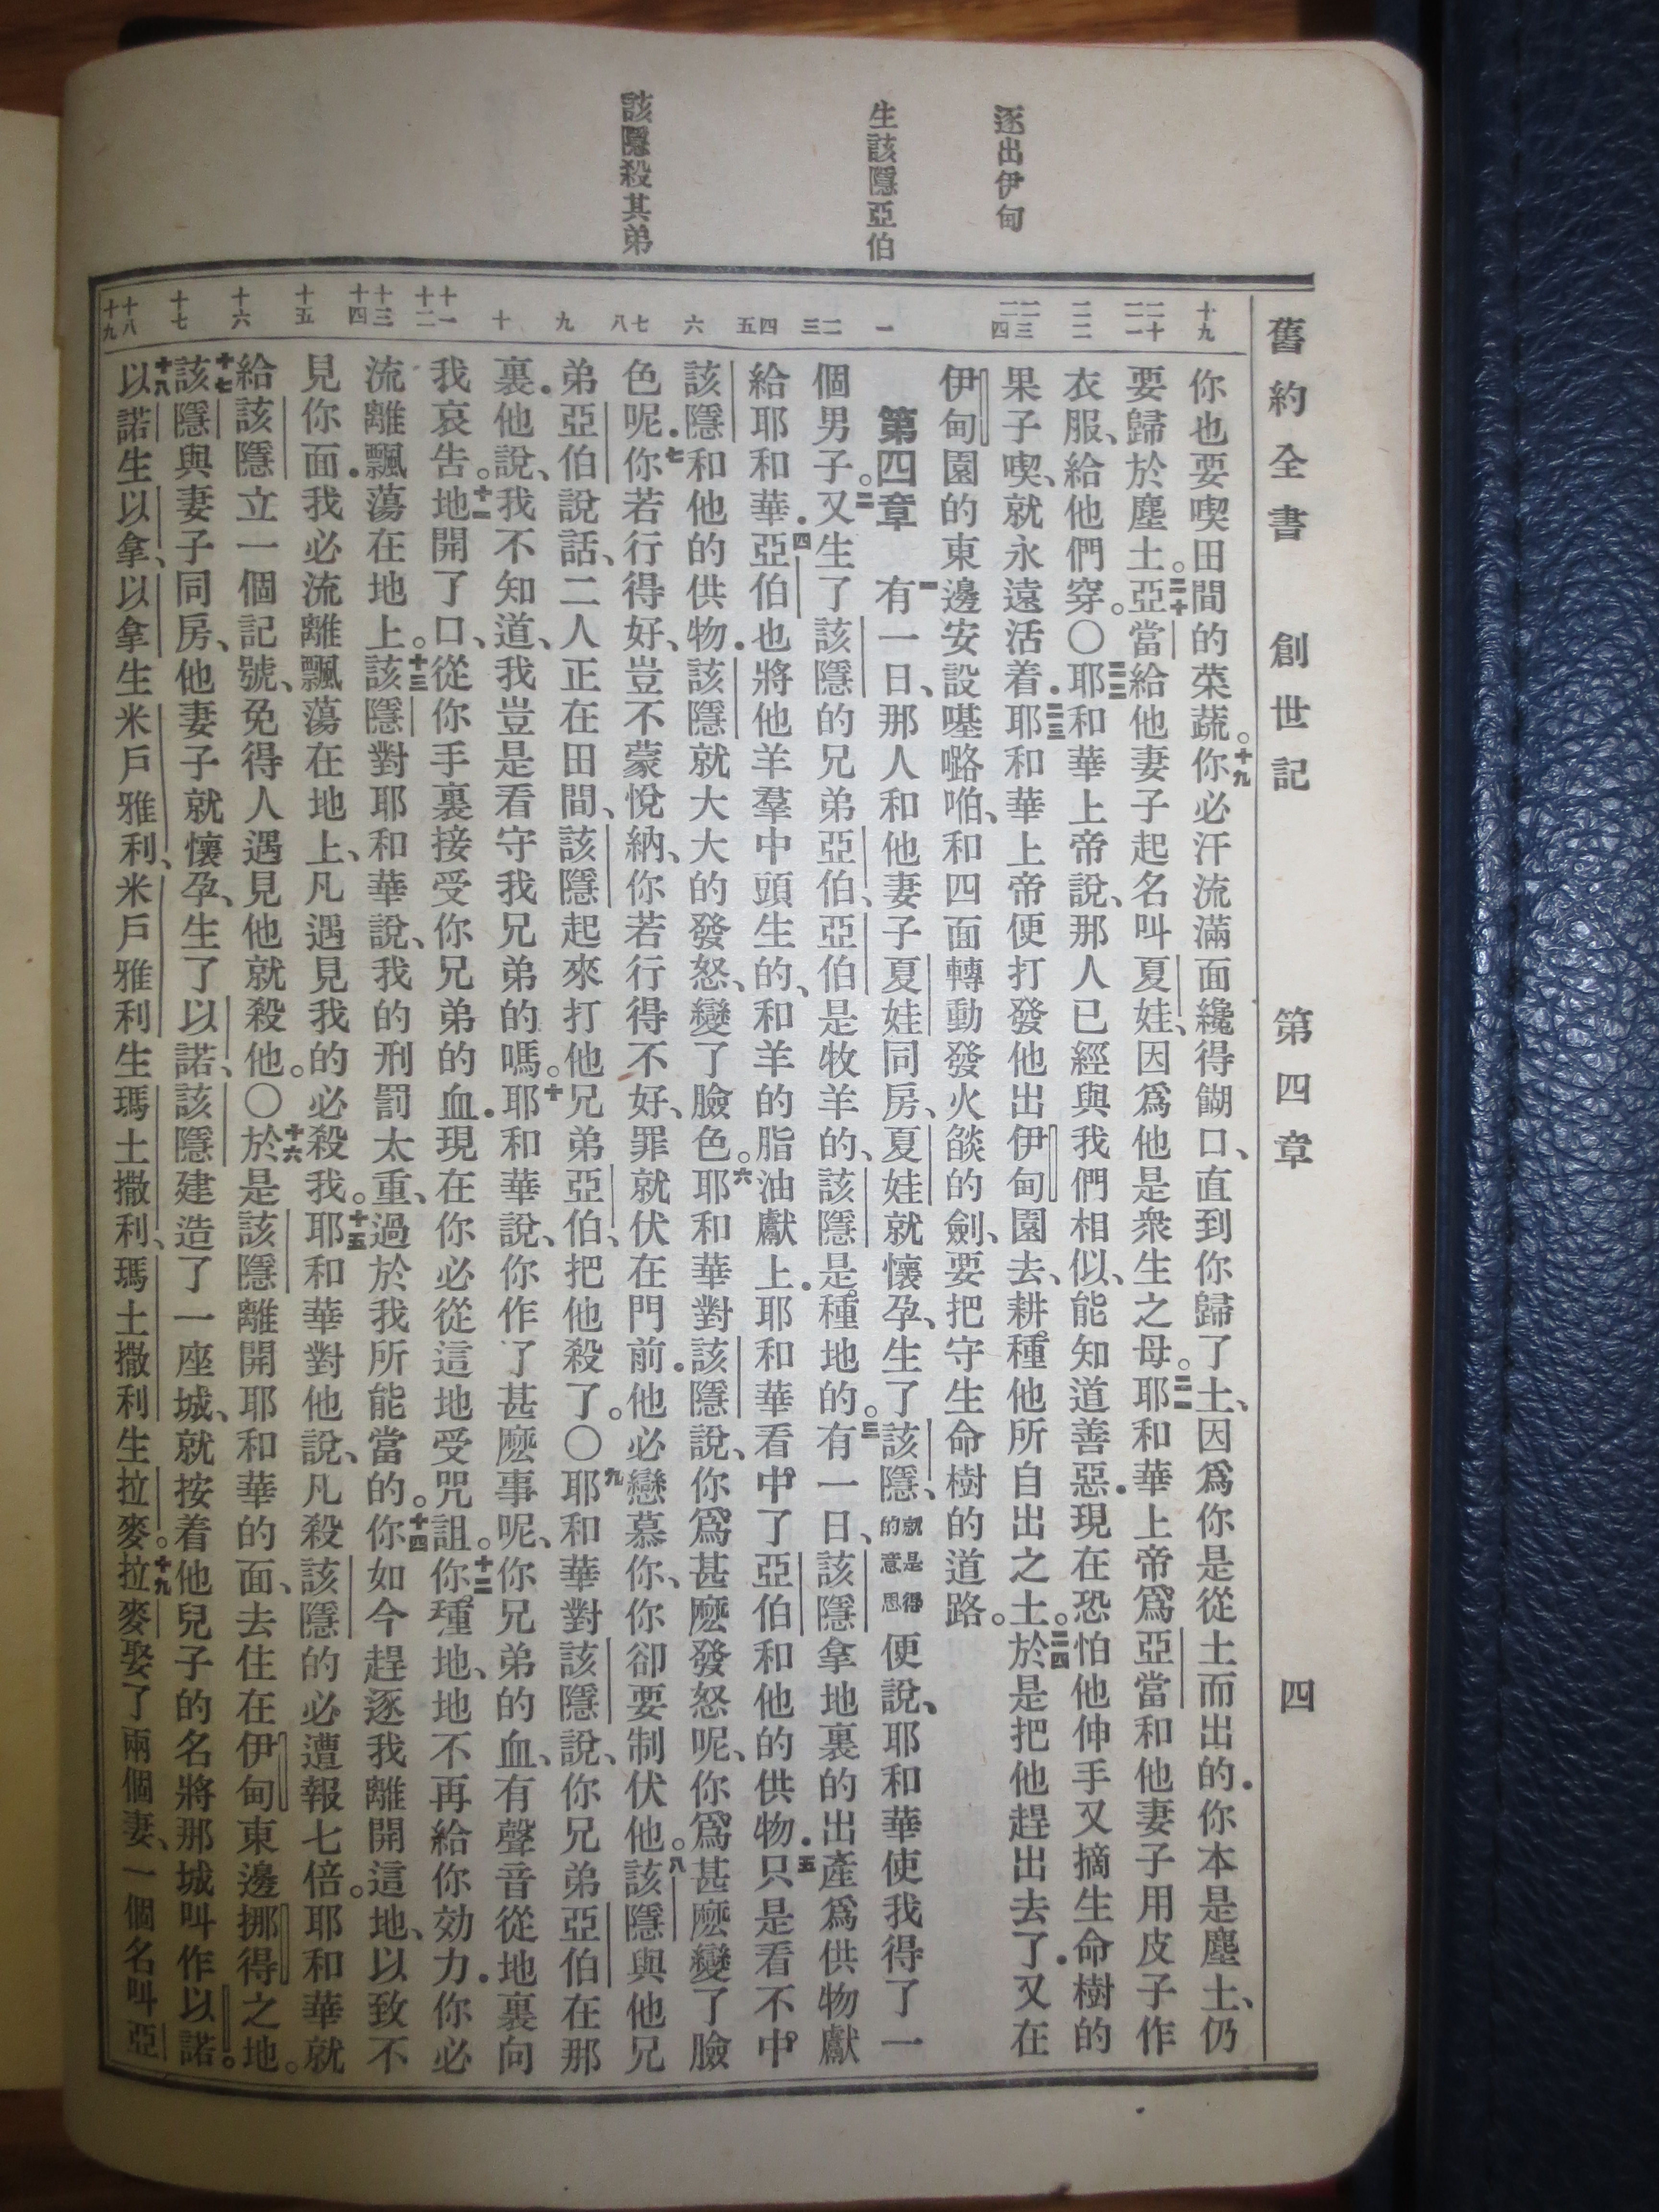 逐出伊甸
生該隱亞伯
該隱殺其弟
舊約全書 創世記 第四章 四
十九
二十 二一
二二
二三 二四
一
二 三
四 五
六
七 八
九
十
十一 十二
十三 十四
十五
十六
十七
十八 十九
你也要喫田間的菜蔬。十九你必汗流滿面纔得餬口、直到你歸了土、因爲你是從土而出的．你本是塵土、仍
要歸於塵土。二十亞當給他妻子起名叫夏娃、因爲他是衆生之母。二一耶和華上帝爲亞當和他妻子用皮子作
衣服、給他們穿。〇二二耶和華上帝說、那人已經與我們相似、能知道善惡．現在恐怕他伸手又摘生命樹的
果子喫、就永遠活着．二三耶和華上帝便打發他出伊甸園去、耕種他所自出之土。二四於是把他趕出去了．又在
伊甸園的東邊安設𠼻㗔啪、和四面轉動發火燄的劍、要把守生命樹的道路。
第四章 一有一日、那人和他妻子夏娃同房、夏娃就懷孕、生了該隱、就是得的意思便說、耶和華使我得了一
個男子。二又生了該隱的兄弟亞伯、亞伯是牧羊的、該隱是種地的。三有一日、該隱拿地裏的出產爲供物獻
給耶和華．四亞伯也將他羊羣中頭生的、和羊的脂油獻上．耶和華看中了亞伯和他的供物．五只是看不中
該隱和他的供物．該隱就大大的發怒、變了臉色。六耶和華對該隱說、你爲甚麽發怒呢、你爲甚麽變了臉
色呢．七你若行得好、豈不蒙悅納、你若行得不好、罪就伏在門前．他必戀慕你、你卻要制伏他。八該隱與他兄
弟亞伯說話、二人正在田間、該隱起來打他兄弟亞伯、把他殺了。〇九耶和華對該隱說、你兄弟亞伯在那
裏．他說、我不知道、我豈是看守我兄弟的嗎。十耶和華說、你作了甚麽事呢、你兄弟的血、有聲音從地裏向
我哀告。十一地開了口、從你手裏接受你兄弟的血．現在你必從這地受咒詛。十二你種地、地不再給你効力．你必
流離飄蕩在地上。十三該隱對耶和華說、我的刑罰太重、過於我所能當的。十四你如今趕逐我離開這地、以致不
見你面．我必流離飄蕩在地上、凡遇見我的必殺我。十五耶和華對他說、凡殺該隱的必遭報七倍。耶和華就
給該隱立一個記號、免得人遇見他就殺他。〇十六於是該隱離開耶和華的面、去住在伊甸東邊挪得之地。
十七該隱與妻子同房、他妻子就懷孕、生了以諾、該隱建造了一座城、就按着他兒子的名將那城叫作以諾。
十八以諾生以拿、以拿生米戶雅利、米戶雅利生瑪土撒利、瑪土撒利生拉麥。十九拉麥娶了兩個妻、一個名叫亞